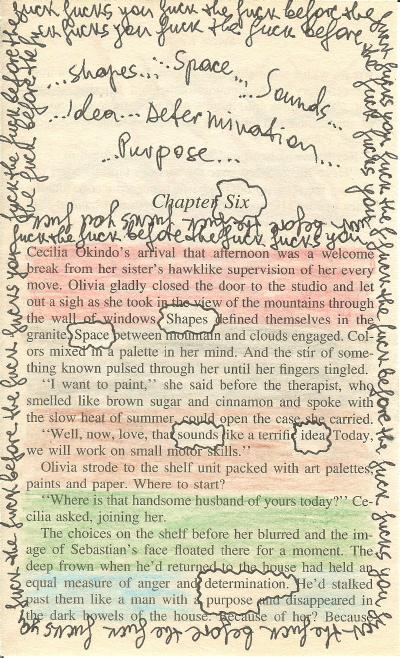 fuck fucks you fuck the fuck before the
fuck fucks you fuck the fuck before
...shapes... Space... Sounds...
...Idea... Determination...
...Purpose...
Chapter Six
the fuck before the fuck fucks you
Cecilia Okindo's arrival that afternoon was a welcome
break from her sister's hawklike supervision of her every
move. Olivia gladly closed the door to the studio and let
out a sigh as she took in the view of the mountains through
the wall of windows. Shapes defined themselves in the
granite. Space between mountain and clouds engaged. Col-
ors mixed in a palette in her mind. And the stir of some-
thing known pulsed through her until her fingers tingled.
"I want to paint," she said before the therapist, who
smelled like brown sugar and cinnamon and spoke with
the slow heat of summer, could open the case she carried.
"Well, now, love, that sounds like a terrific idea. Today,
we will work on small motor skills."
Olivia strode to the shelf unit packed with art palettes,
paints and paper. Where to start?
"Where is that handsome husband of yours today?" Ce-
cilia asked, joining her.
The choices on the shelf before her blurred and the im-
age of Sebastian's face floated there for a moment. The
deep frown when he'd returned to the house had held an
equal measure of anger and determination. He'd stalked
past them like a man with a purpose and disappeared in
the dark bowels of the house. Because of her? Because
the fuck before the fuck fucks you